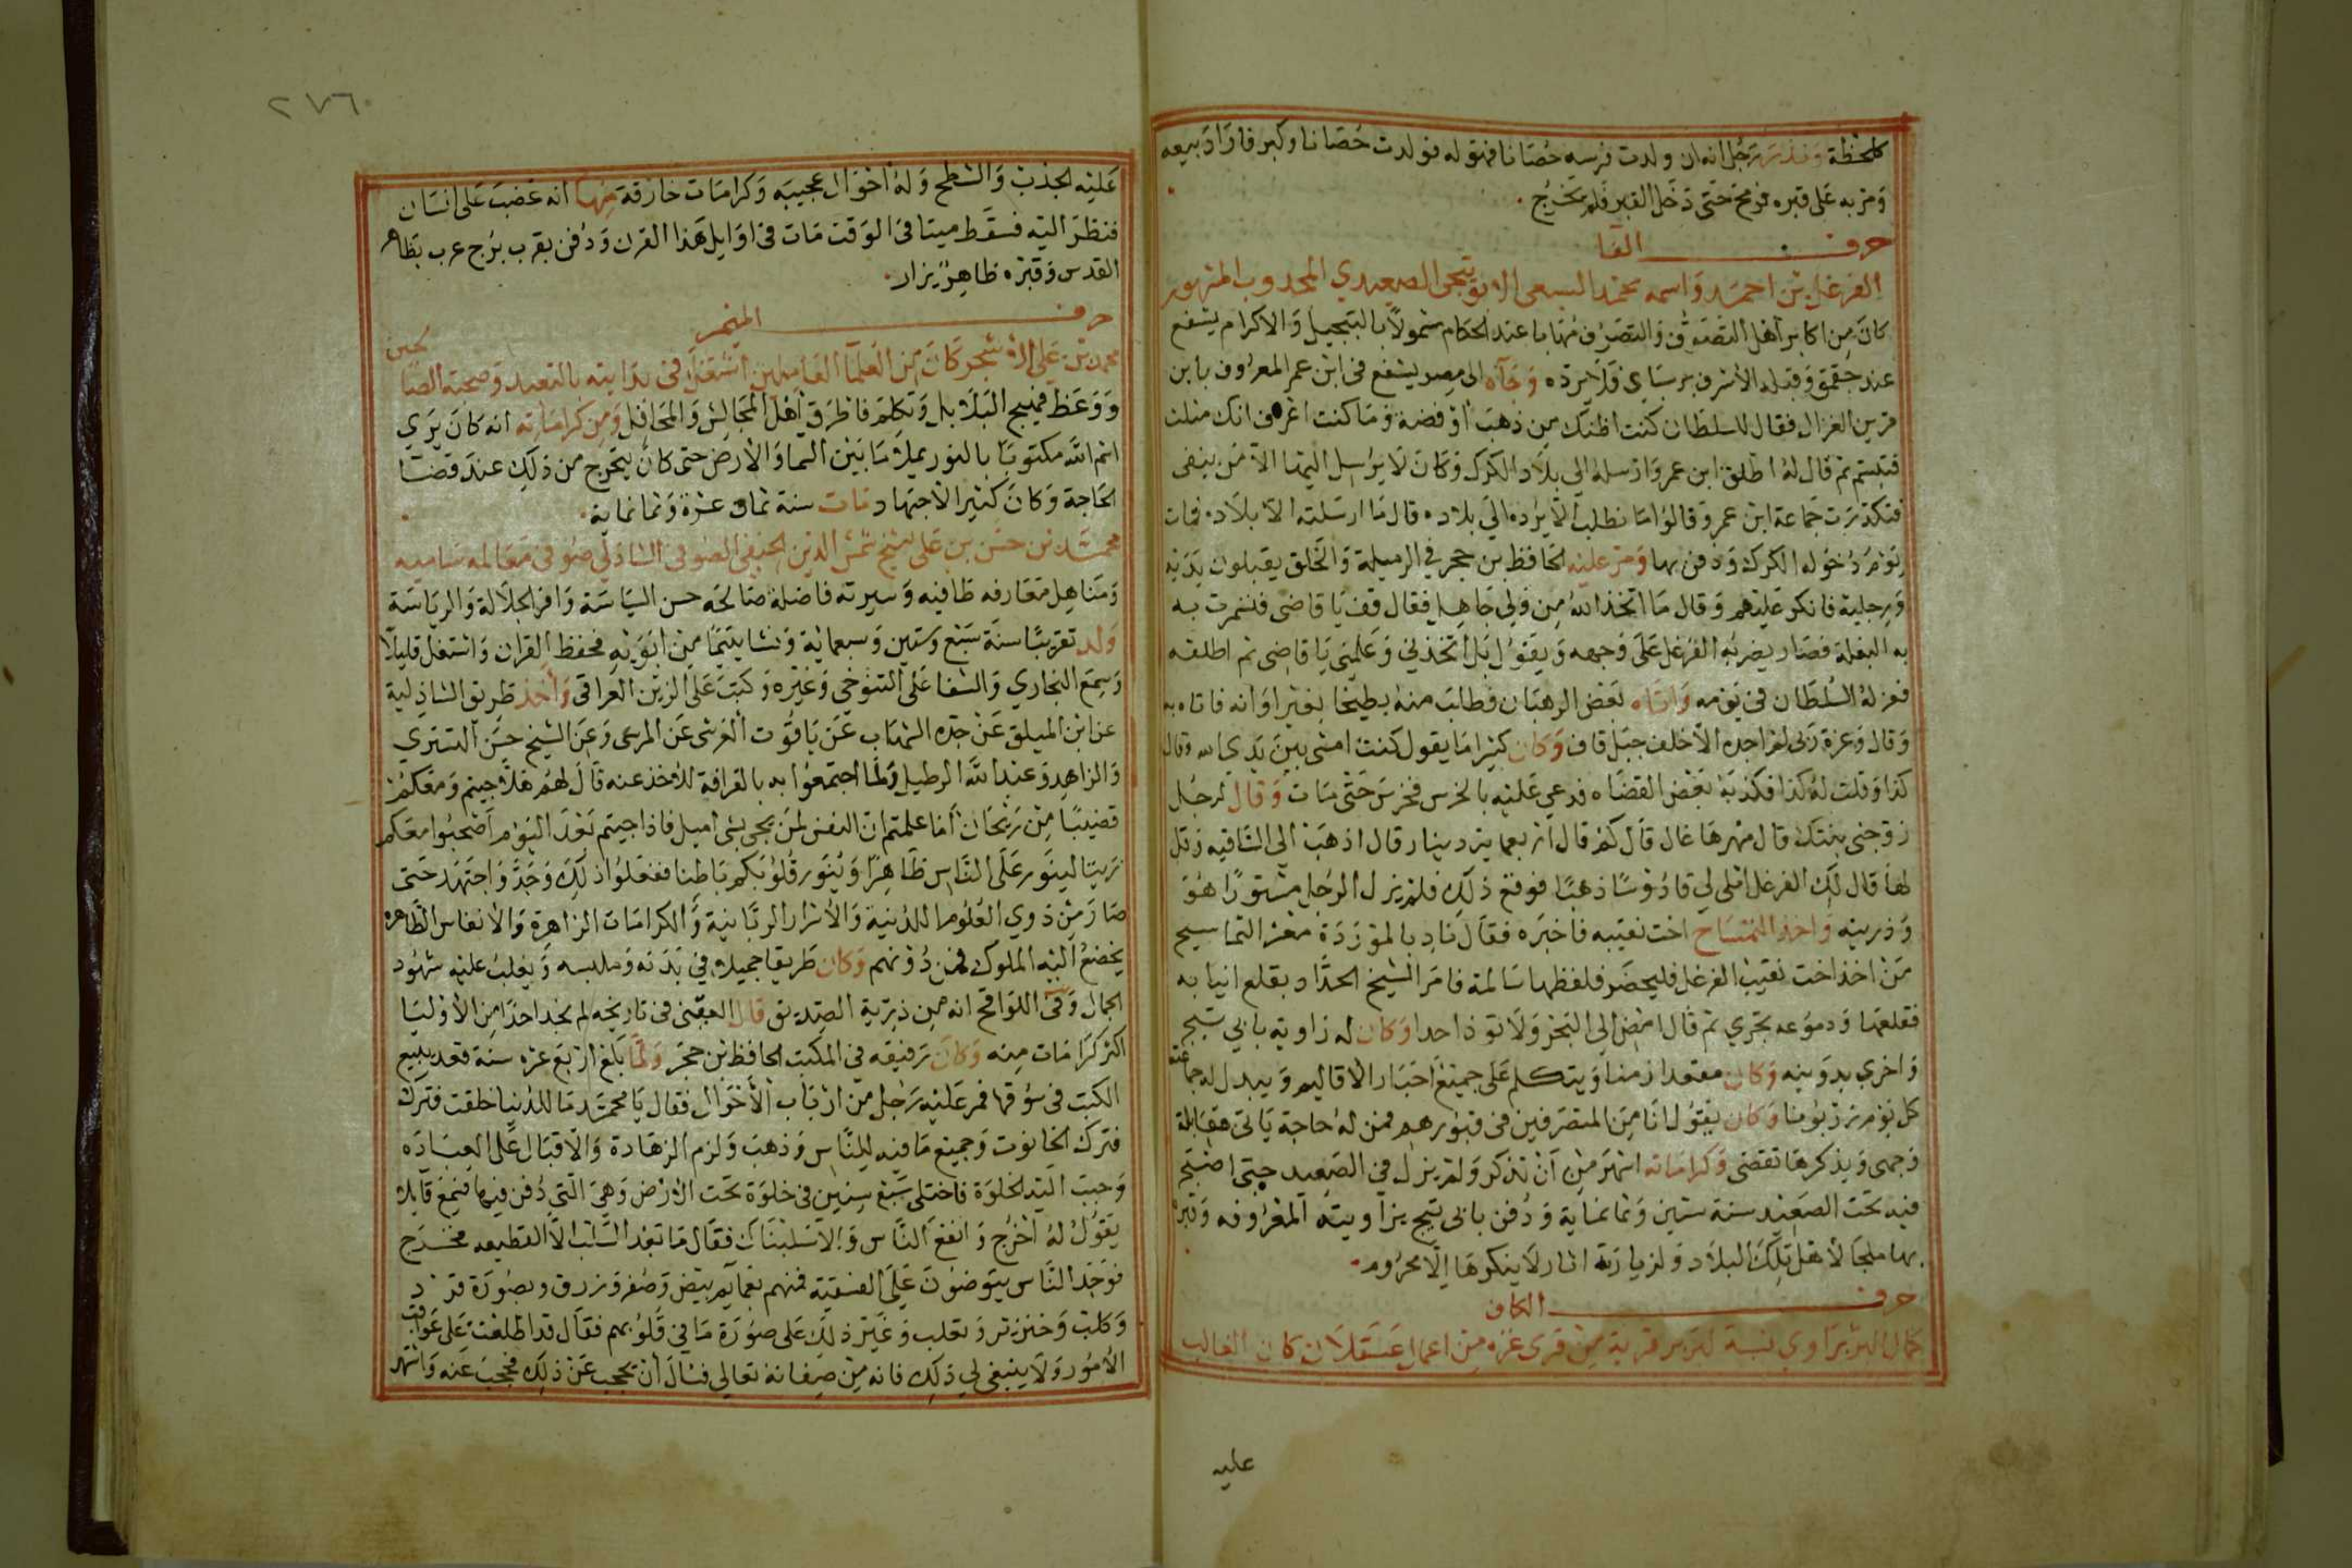 كلحظة ونذر رجل انه ان ولدت فرسه حصانا فهو له فولدت حصانا وكبر فاراد بيعه
ومر به على قبره فرمح حتى دخل القبر فلم يخرج
حرف الفا
الفرغل بن احمد واسمه محمد السبعى التيجى الصعيدي المجدوب المشهور
كان من اكابر اهل التصوف والتصرف مهابا عند الحكام شمولا بالتبجيل والاكرام يشفع
عند جقمق وقبله الاشرف برسباي فلا يرده وجآه الى مصر يشفع في ابن عمر المعروف بابن
قرين الغزال فقال للسلطان كنت اظنك من ذهب او فضة وما كنت اعرف انك مثلت
فتبسم ثم قال له اطلق ابن عمر وارسله الى بلاد الكرك وكان لا يرسل اليها الا من ينفى
فتكدرت جماعة ابن عمر وقالوا ما نطلب الا يرده الي بلاده قال ما ارسلته الا بلاده فمات
يوم دخوله الكرك ودفن بها ومر عليه الحافظ بن حجر في الرميلة والخلق يقبلون يديه
ورجليه فانكر عليهم وقال ما اتخذ الله من ولي جاهل فقال قف يا قاضي فتسمرت به
به البغلة فصار يضربه الفرغل على وجهه ويقول بل اتخذني وعلمني يا قاضي ثم اطلقه
فعزله السلطان في يومه واتاه بعض الرهبان فطالب منه بطيخا بغير اوانه فاتاه به
وقال وعزة ربى لم اجده الا خلف جبل قاف وكان كثيرا ما يقول كنت امشي بين يدي الله وقال
كذا وقلت له كذا فكذبه بعض القضاه فدعي عليه بالخرس فخرس حتى مات وقال لرجل
زوجني بنتك قال مهرها غال قال كم قال اربعماية دينار قال اذهب الي الساقيه وقل
لها قال لك الفرغل املى لي قادوسا ذهبا فوقع ذلك فلم يزل الرجل مستورا هو
وذريته واخذ التمساح اخت نقيبه فاخبره فقال ناد بالموردة معشر التماسيح
من اخذ اخت نقيب الفرغل فليحضر فلفظها سالمة فامر الشيخ الحداد بقلع انيابه
فقلعها ودموعه تجري ثم قال امض الي البحر ولا توذ احدا وكان له زاوية بابي تيج
واخرى بدوينه وكان مقعدا زمنا ويتكلم على جميع اخبار الاقاليم ويبدل له جماعته
كل يوم زربونا وكان يقول انا من المتصرفين في قبورهم فمن له حاجة ياتى مقابلة
وجهى ويذكرها تقضى وكراماته اشهر من ان تذكر ولم يزل في الصعيد حتى اصبح
فيه تحت الصعيد سنة ستين وثمانماية ودفن بابي تيج بزاويته المعروفه وقبره
بها ملجا لاهل تلك البلاد ولزيارته اثار لا ينكرها الا محروم
حرف الكاف
كمال البربراوي نسبة لبربر قرية من قرى غزه من اعمال عسقلان كان الغالب
عليه
٢٧٦
عليه الجذب والشطح وله احوال عجيبه وكرامات خارقة منها انه غضب على انسان
فنظر اليه فسقط ميتا في الوقت مات في اوايل هذا القرن ودفن بقرب برج عرب بظاهر
القدس وقبره ظاهر يزار
حرف الميم
محمد بن على كان من العلما العاملين اشتغل في بدايته بالتعبد وصحبة الصالحين
ووعظ فهيج البلابل وتكلم فاطرق اهل المجالس والمحافل ومن كراماته انه كان يري
اسم الله مكتوبا بالنور يملا ما بين السما والارض حتى كان يتحرج من ذلك عند قضا
الحاجة وكان كثير الاجتهاد مات سنة ثمان عشرة وثمانماية
محمد بن حسن بن على الشيخ شمس الدين الحنفي الصوفى الشاذلي صوفى معالمه ساميه
ومناهل معارفه طافيه وسيرته فاضلة صالحه حسن السياسة وافر الجلالة والرياسة
ولد تقريبا سنة سبع وستين وسبعماية ونشا يتيما من ابويه فحفظ القران واشتغل قليلا
وسمع البخاري والشفا على التنوخي وغيره وكتب على الزين العراقي واخذ طريق الشاذلية
عن ابن الميلق عن جده الشهاب عن ياقوت العرشى عن المرسى وعن الشيخ حسن التستري
والزاهد وعبد الله الرطيل ولما اجتمعوا به بالقرافة للاخذ عنه قال لهم هلا جيتم ومعكم
قضيبا من ريحان اما علمتم ان النفس لمن يجى بشى اميل فاذا جيتم بعد اليوم اصحبوا معكم
زيتا لينور على الناس ظاهرا وينور قلوبكم باطنا ففعلوا ذلك وجد واجتهد حتى
صار من ذوي العلوم اللدنية والاسرار الربانية والكرامات الزاهرة والانفاس الظاهره
يخضع اليه الملوك فمن دونهم وكان طريقا جميلا في بدنه وملبسه ويغلب عليه شهود
الجمال وفي اللواقح انه من ذرية الصديق قال العينى في تاريخه لم نجد احدا من الاوليا
اكثر كرامات منه وكان رفيقه في المكتب الحافظ بن حجر ولما بلغ اربع عشره سنة قعد يبيع
الكتب في سوقها فمر عليه رجل من ارباب الاحوال فقال يا محمد ما للدنيا خلقت فترك
فترك الحانوت وجميع ما فيه للناس وذهب ولزم الزهادة والاقبال على العباده
وحبب اليه الخلوة فاختلى سبع سنين في خلوة تحت الارض وهي التي دفن فيها فسمع قايلا
يقول له اخرج وانفع الناس والا سلبناك فقال ما بعد السلب الا القطيعه فخرج
فوجد الناس يتوضون على الفسقية فمنهم بعمايم بيض وصفر وزرق وبصورة قرد
وكلب وخنزير وثعلب وغير ذلك على صورة ما في قلوبهم فقال قد اطلعت على عواقب
الامور ولا ينبغى لي ذلك فانه من صفاته تعالي فسال ان يحجب عن ذلك فحجب عنه واشتهر